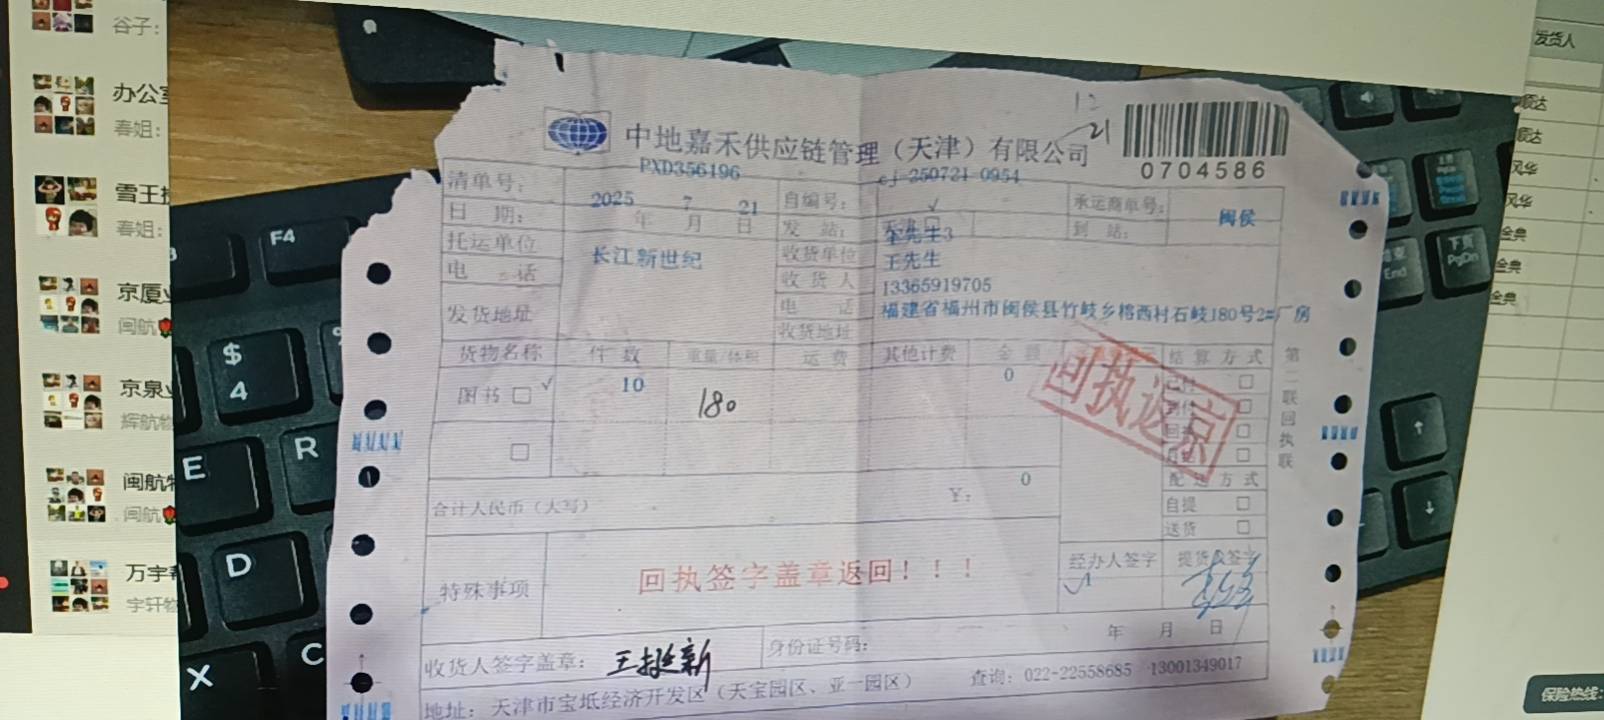 谷子:
办公室
春姐:
雪王
春姐:
京厦
闽航
京泉业
辉航物
闽航物
闽航
万宇
宇轩物
发货人
顺达
顺达
风华
风华
金典
金典
F4
$
4
E
R
D
X
C
End
下页
PgDn
保险热线:
12
21
中地嘉禾供应链管理（天津）有限公司
0704586
清单号:
PXD356196
自编号:
cj-250721-0954
承运商单号:
日 期:
2025 年 7 月 21 日
发 站:
天津 √
到 站:
闽侯
托运单位
长江新世纪
收货单位
李先生3
电 话
收 货 人
王先生
电 话
13365919705
发货地址
收货地址
福建省福州市闽侯县竹岐乡榕西村石岐180号2#厂房
货物名称 件 数 重量/体积 运 费 其他计费 金 额 结 算 方 式
图书 □ √ 10 180 0
回执返京
第二联回执联
配 送 方 式
自提 □
送货 □
合计人民币（大写） ¥: 0
特殊事项
回执签字盖章返回！！！
经办人签字
提货人签字
收货人签字盖章: 王挺新
身份证号码:
年 月 日
地址: 天津市宝坻经济开发区（天宝园区、亚一园区） 查询: 022-22558685 13001349017